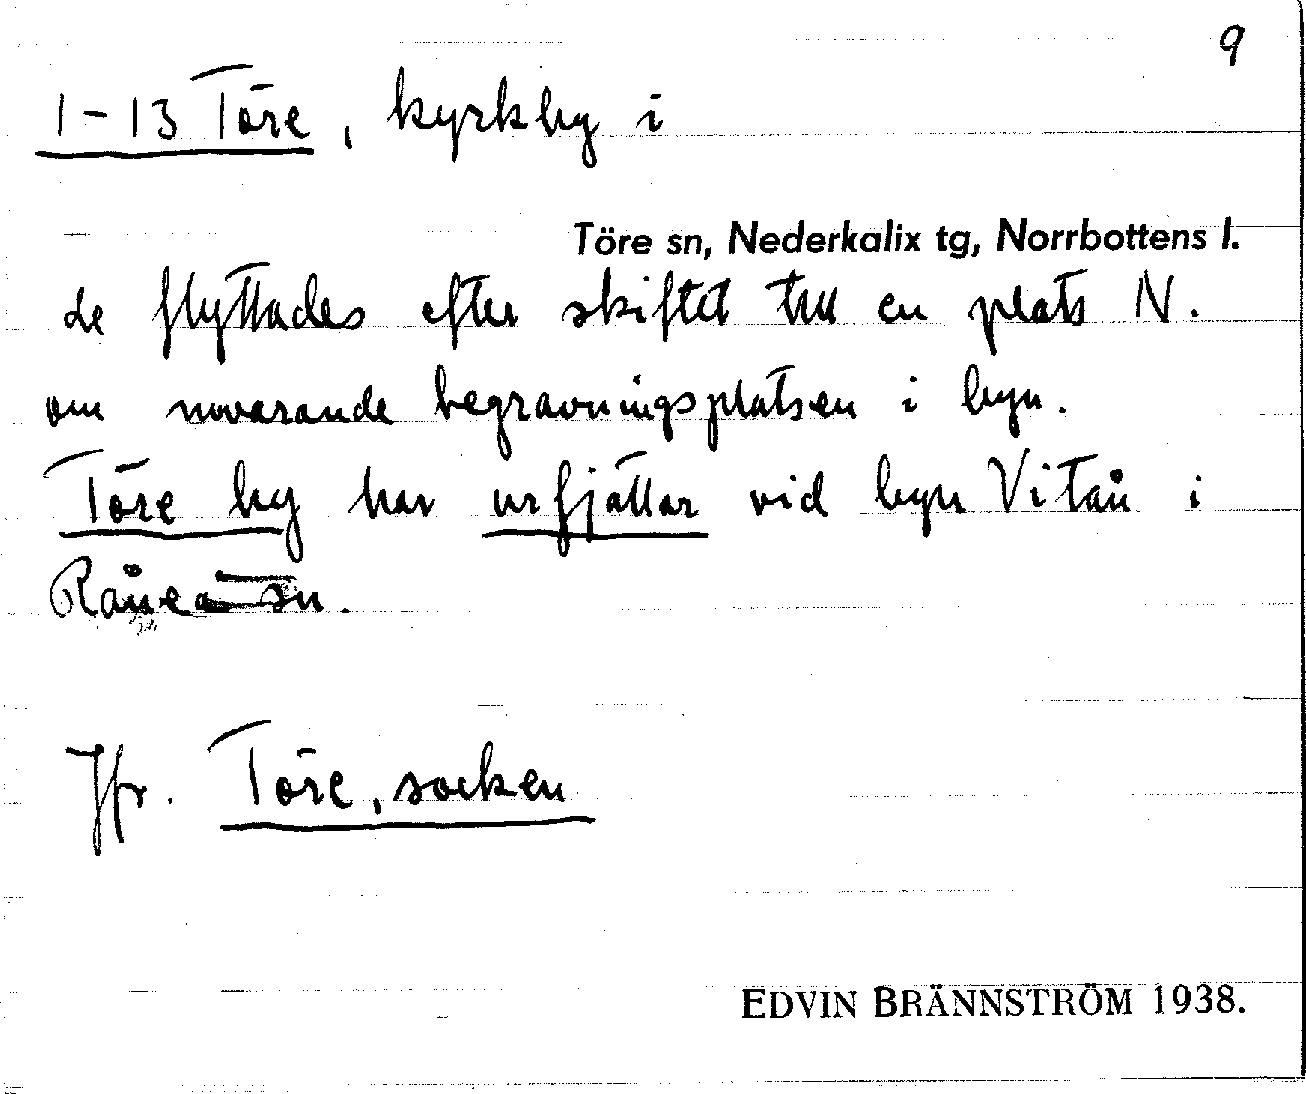 9
1-13 Töre, kyrkby i
Töre sn, Nederkalix tg, Norrbottens l.
de flyttades efter skiftet till en plats N.
om nuvarande begravningsplatsen i byn.
Töre by har urfjällar vid byn Vitån i
Råneå sn.
Jfr. Töre, socken
EDVIN BRÄNNSTRÖM 1938.